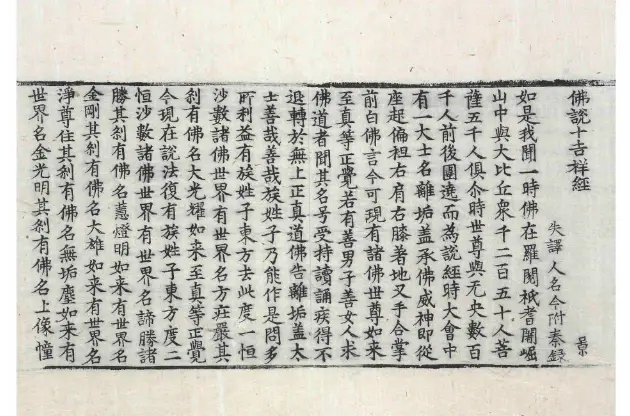 佛說十吉祥經
失譯人名今附秦錄 景
如是我聞一時佛在羅閱祇耆闍崛
山中與大比丘衆千二百五十人菩
薩五千人俱尒時世尊與无央數百
千人前後圍遶而為說經時大會中
有一大士名離垢盖承佛威神即從
座起偏袒右肩右膝著地叉手合掌
前白佛言今可現有諸佛世尊如來
至真等正覺若有善男子善女人求
佛道者聞其名号受持讀誦疾得不
退轉於無上正真道佛告離垢盖大
士善哉善哉族姓子乃能作是問多
所利益有族姓子東方去此度一恒
沙數諸佛世界有世界名方莊嚴其
刹有佛名大光耀如来至真等正覺
今現在説法復有族姓子東方度二
恒沙數諸佛世界有世界名諦勝諸
勝其刹有佛名蕙燈明如来有世界名
金剛其刹有佛名大雄如来有世界名
淨尊住其刹有佛名無垢塵如来有
世界名金光明其刹有佛名上像幢